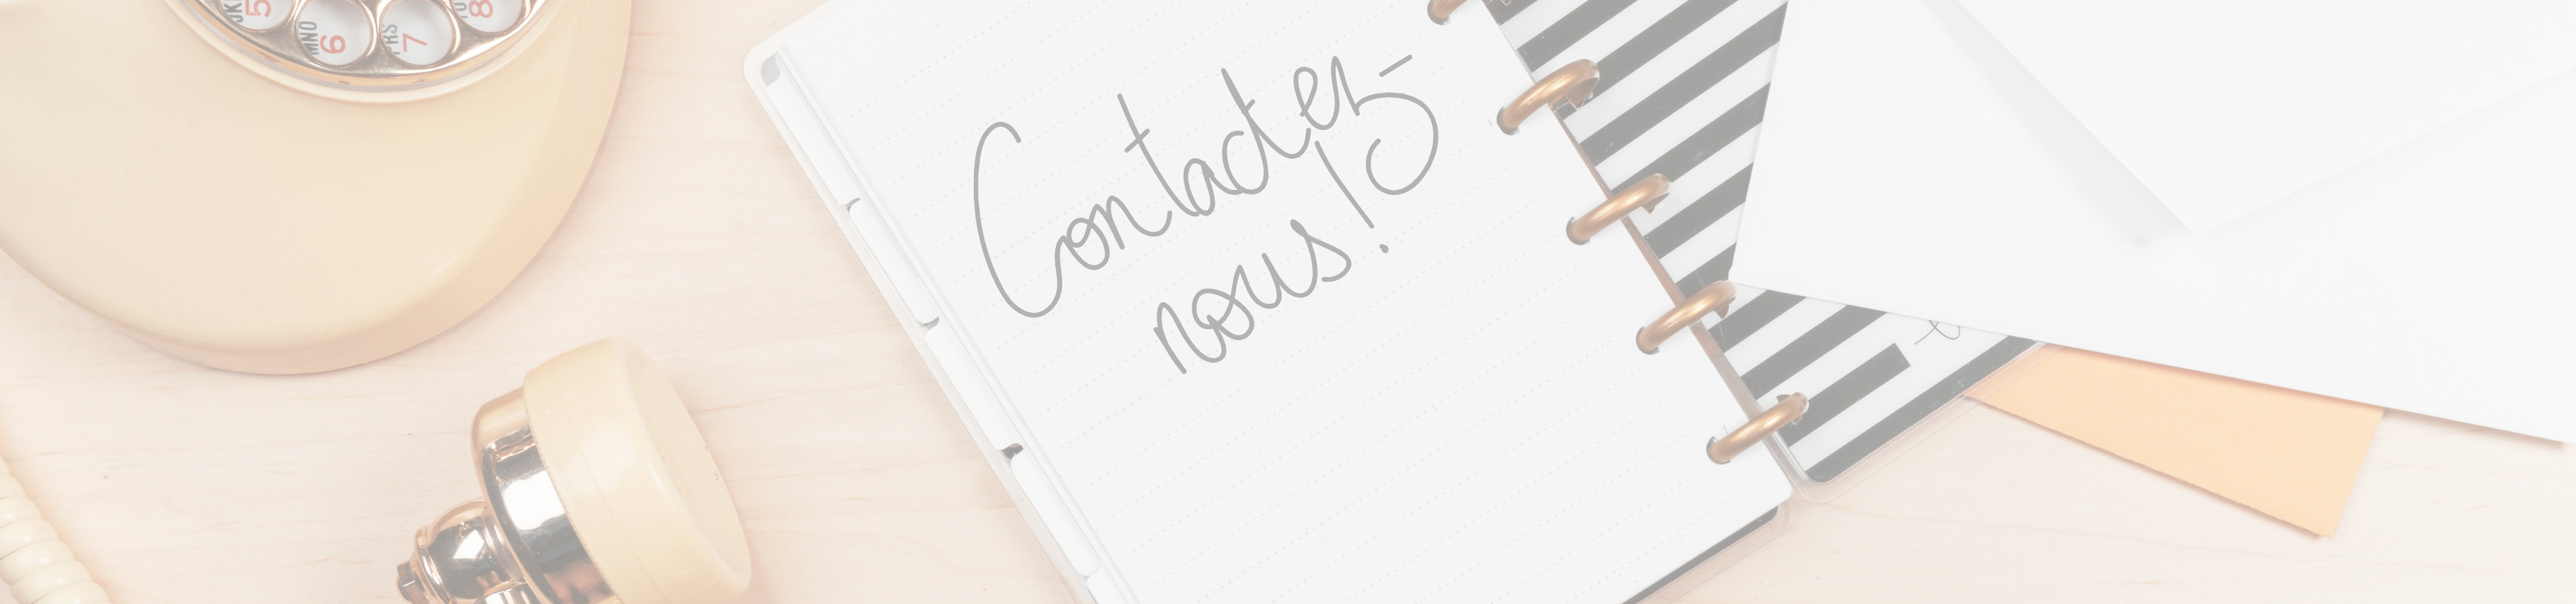 JKL 5
MNO 6
PRS 7
8
Contactez-
nous!